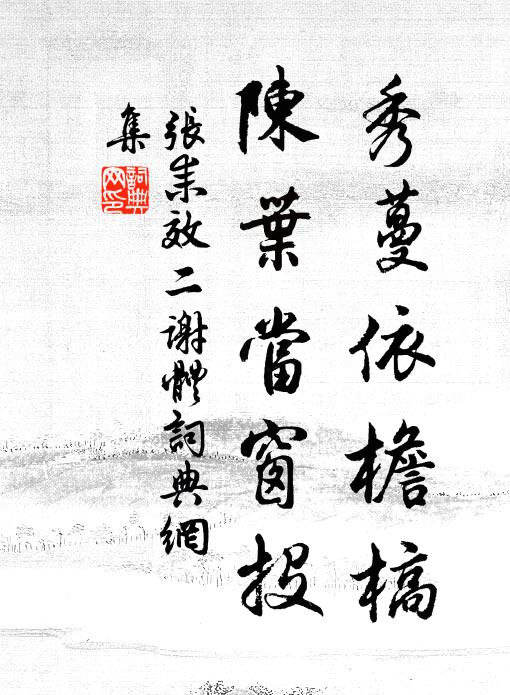 秀蔓依檐槁
陳葉當窗投
張耒效二謝體詞典網
集
詞典網印